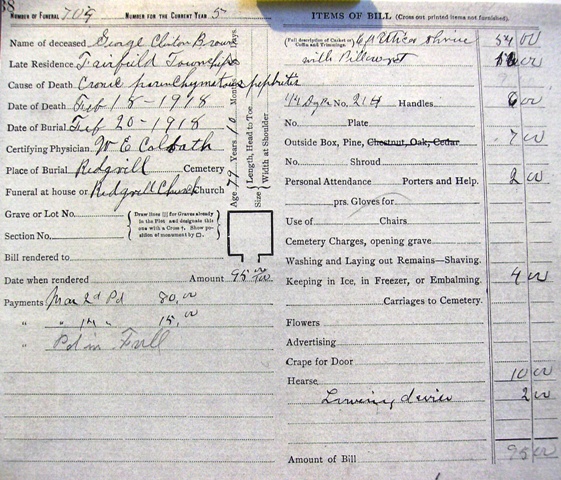 88
NUMBER OF FUNERAL 709 NUMBER FOR THE CURRENT YEAR 5
Name of deceased George Clinton Brown
Late Residence Fairfield Township
Cause of Death Cronic parenchymatous nephritis
Date of Death Feb 18-1918
Date of Burial Feb 20-1918
Certifying Physician W E Colbath
Place of Burial Ridgvill Cemetery
Funeral at house or Ridgvill Church Church
Age 79 Years 10 Months Days.
Size { Length, Head to Toe.
Width at Shoulder
Grave or Lot No.
Section No.
{ Draw lines ||| for Graves already in the Plot and designate this one with a Cross †. Show position of monument by □. }
Bill rendered to
Date when rendered Amount 95 00/100
Payments Mar 2d Pd 80,00
" " 14 " 15,00
" Pd in Full
ITEMS OF BILL (Cross out printed items not furnished).
(Full description of Casket or Coffin and Trimmings. 6ft Utica Shrine 54 00
with
No. 214 Handles, 6 00
No. Plate
Outside Box, Pine, Chestnut, Oak, Cedar 7 00
No. Shroud
Personal Attendance Porters and Help. 2 00
prs. Gloves for
Use of Chairs
Cemetery Charges, opening grave
Washing and Laying out Remains—Shaving.
Keeping in Ice, in Freezer, or Embalming. 4 00
Carriages to Cemetery.
Flowers
Advertising
Crape for Door
Hearse 10 00
Lowering device 2 00
Amount of Bill 95 00